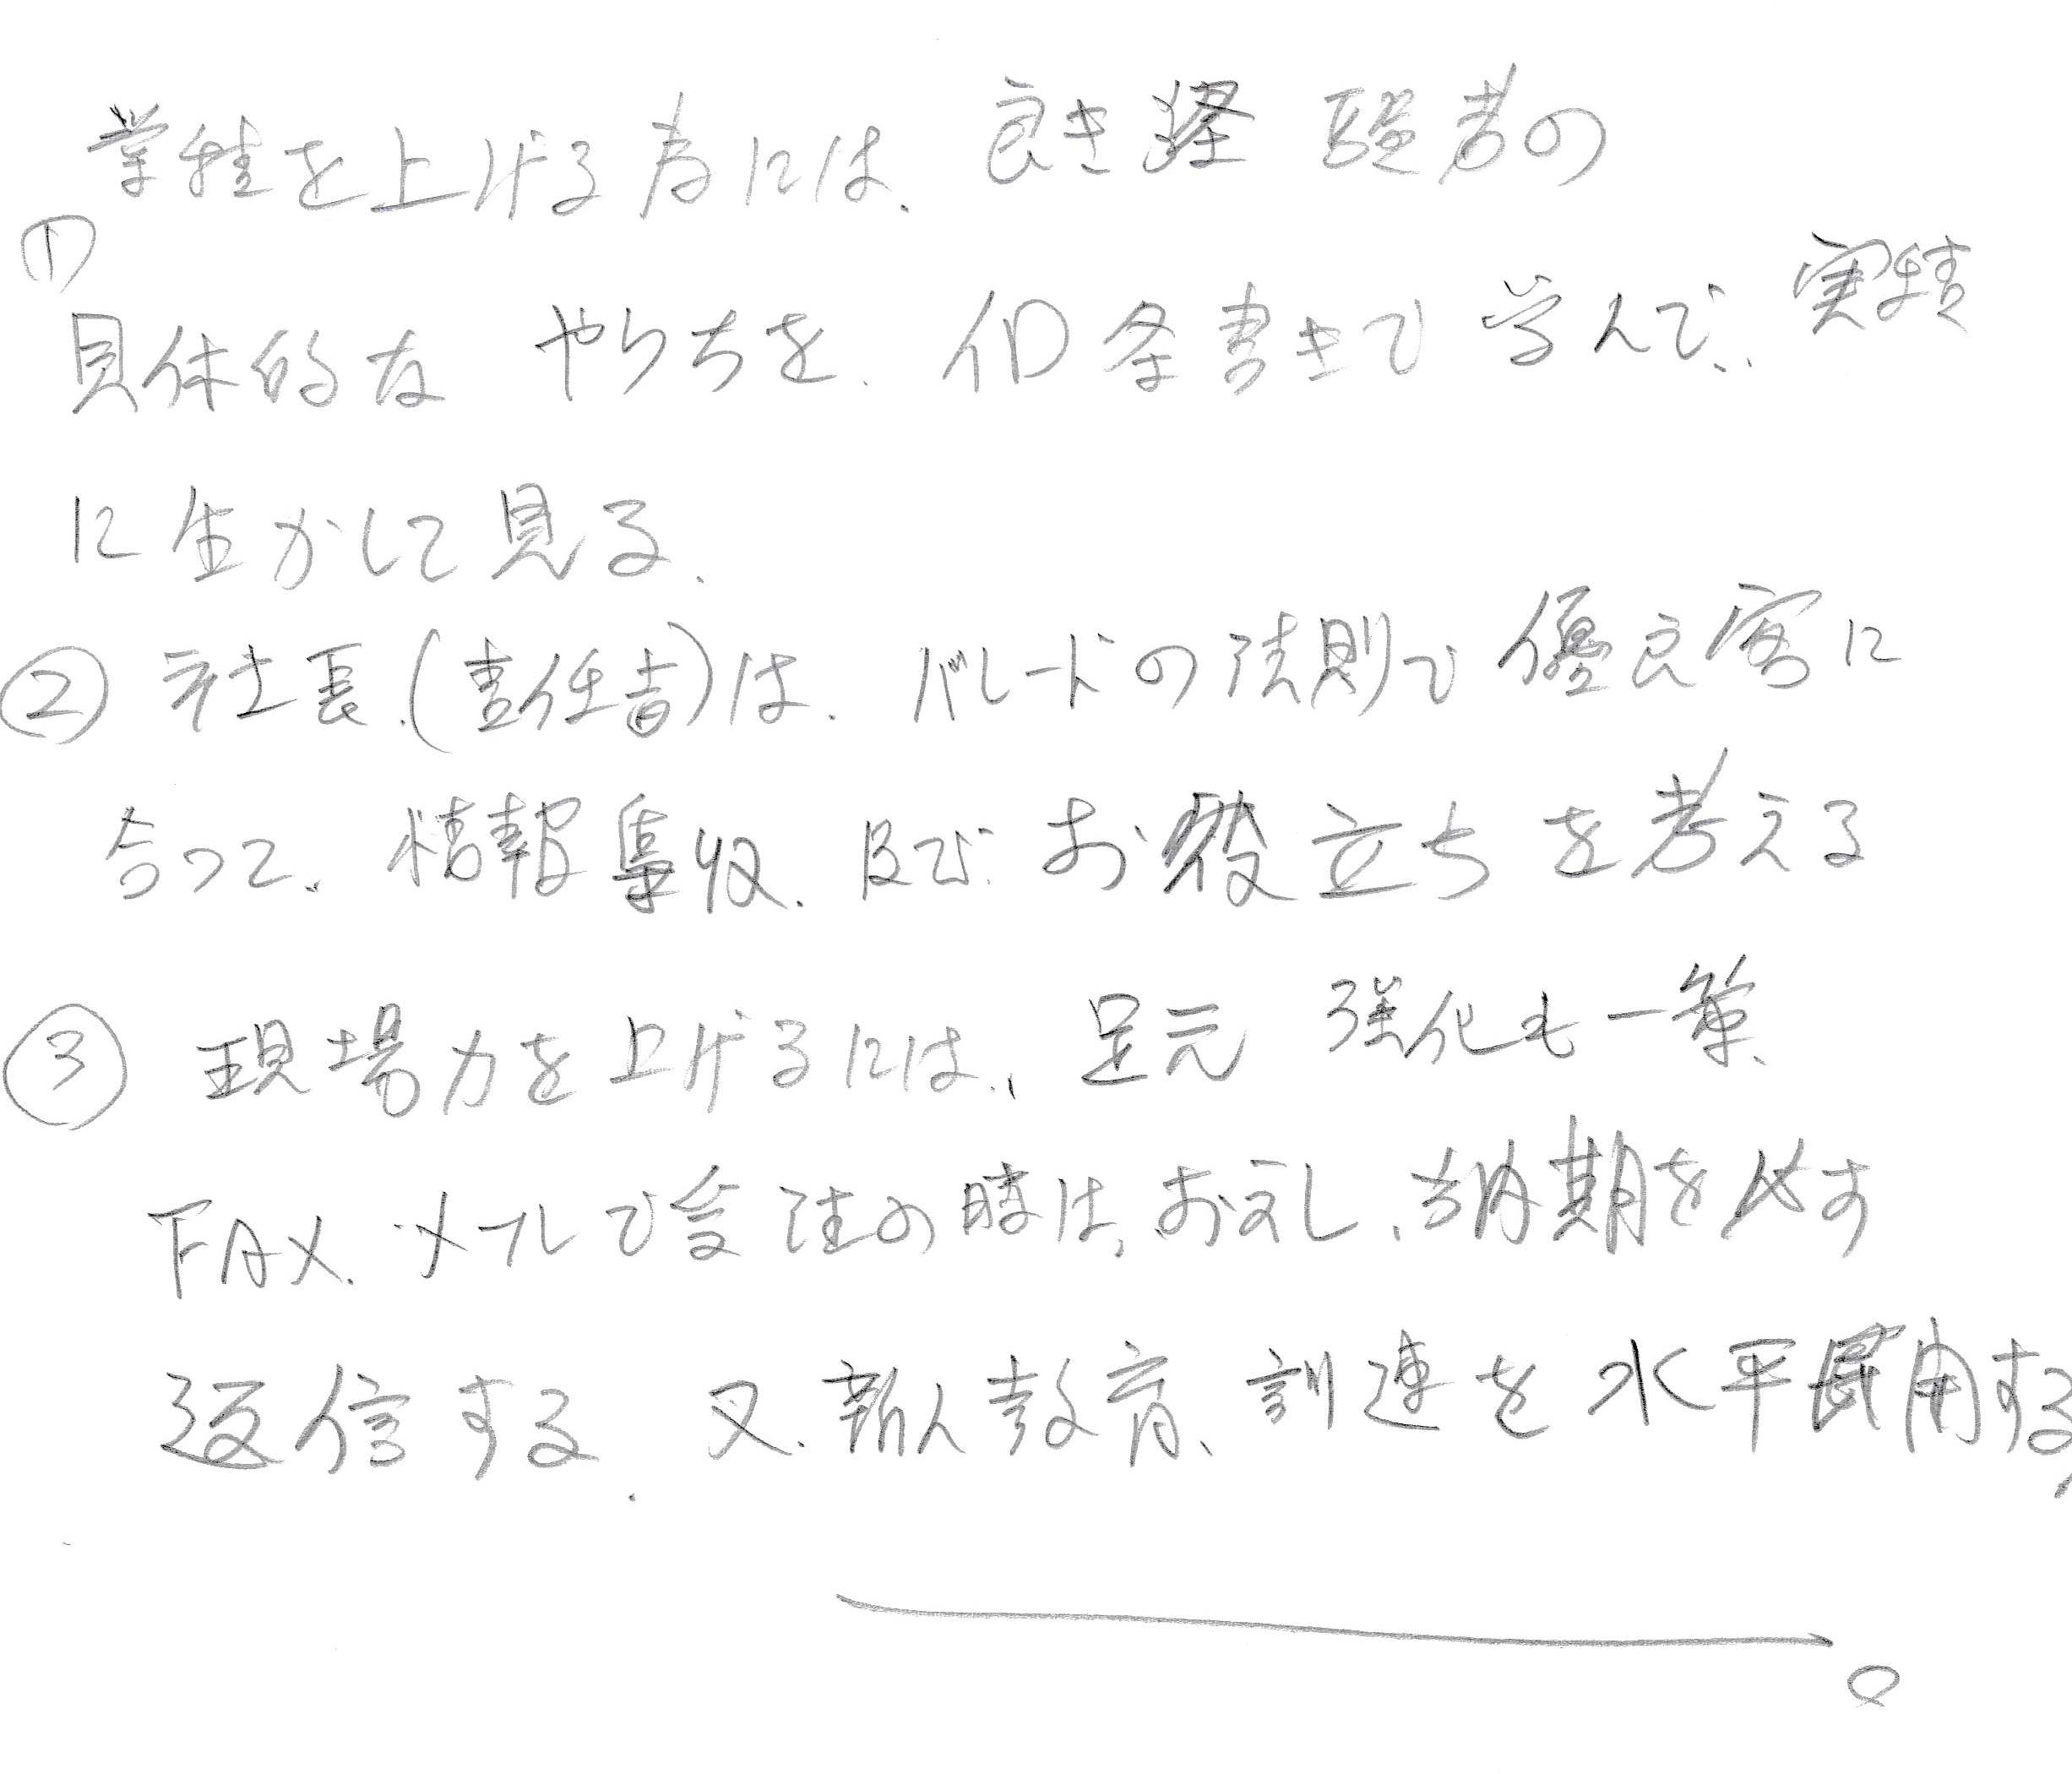 業績を上げる為には、良き経験者の
①
具体的な やり方を、個条書きで学んで、実績
に生かして見る、
② 社長、(責任者)は、パレードの法則で優良客に
合って、情報集収、及び、お役立ちを考える
③ 現場力を上げるには、足元 強化も一策、
FAX、メールで受注の時は、お礼、納期を必す
返信する、又、新人教育、訓連を水平展用する、